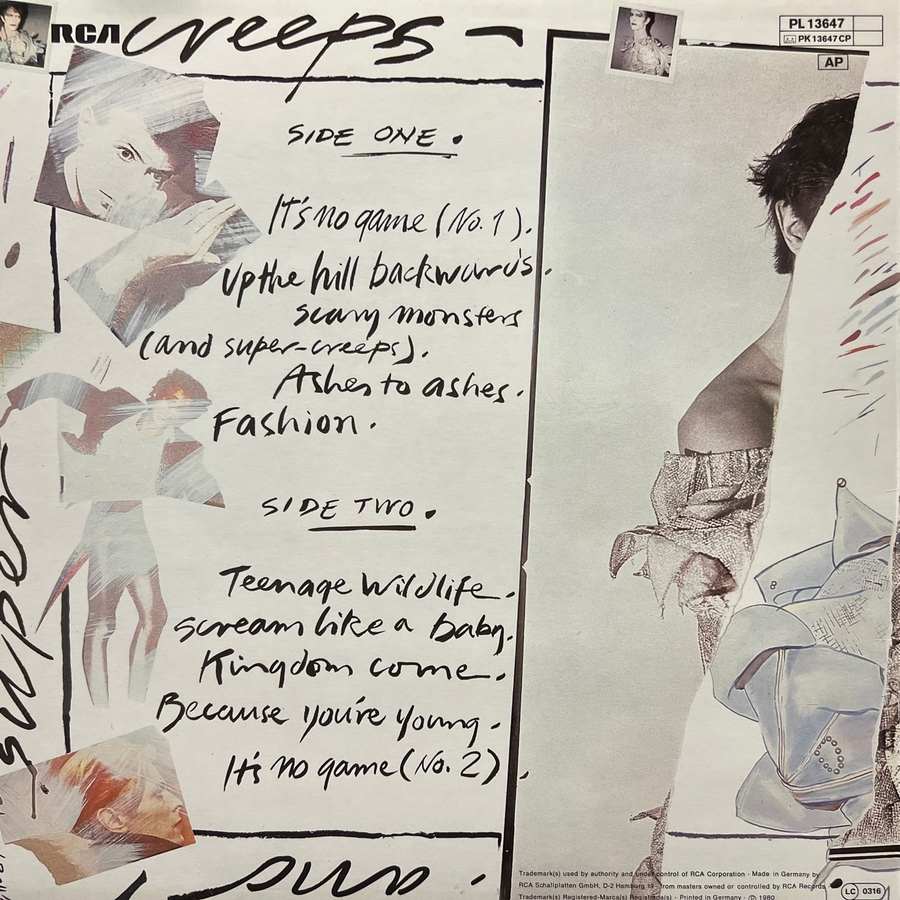 RCA creeps -
PL 13647
PK 13647 CP
AP
SIDE ONE.
It's no game (No. 1).
Up the hill backwards.
scary monsters
(and super-creeps).
Ashes to ashes.
Fashion.
SIDE TWO.
Teenage Wildlife.
scream like a baby.
Kingdom come.
Because you're young.
It's no game (No. 2).
super
and
Trademark(s) used by authority and under control of RCA Corporation · Made in Germany by
RCA Schallplatten GmbH, D-2 Hamburg 19 · from masters owned or controlled by RCA Records
Trademark(s) Registered-Marca(s) Registrada(s) · Printed in Germany · ℗ 1980
LC 0316